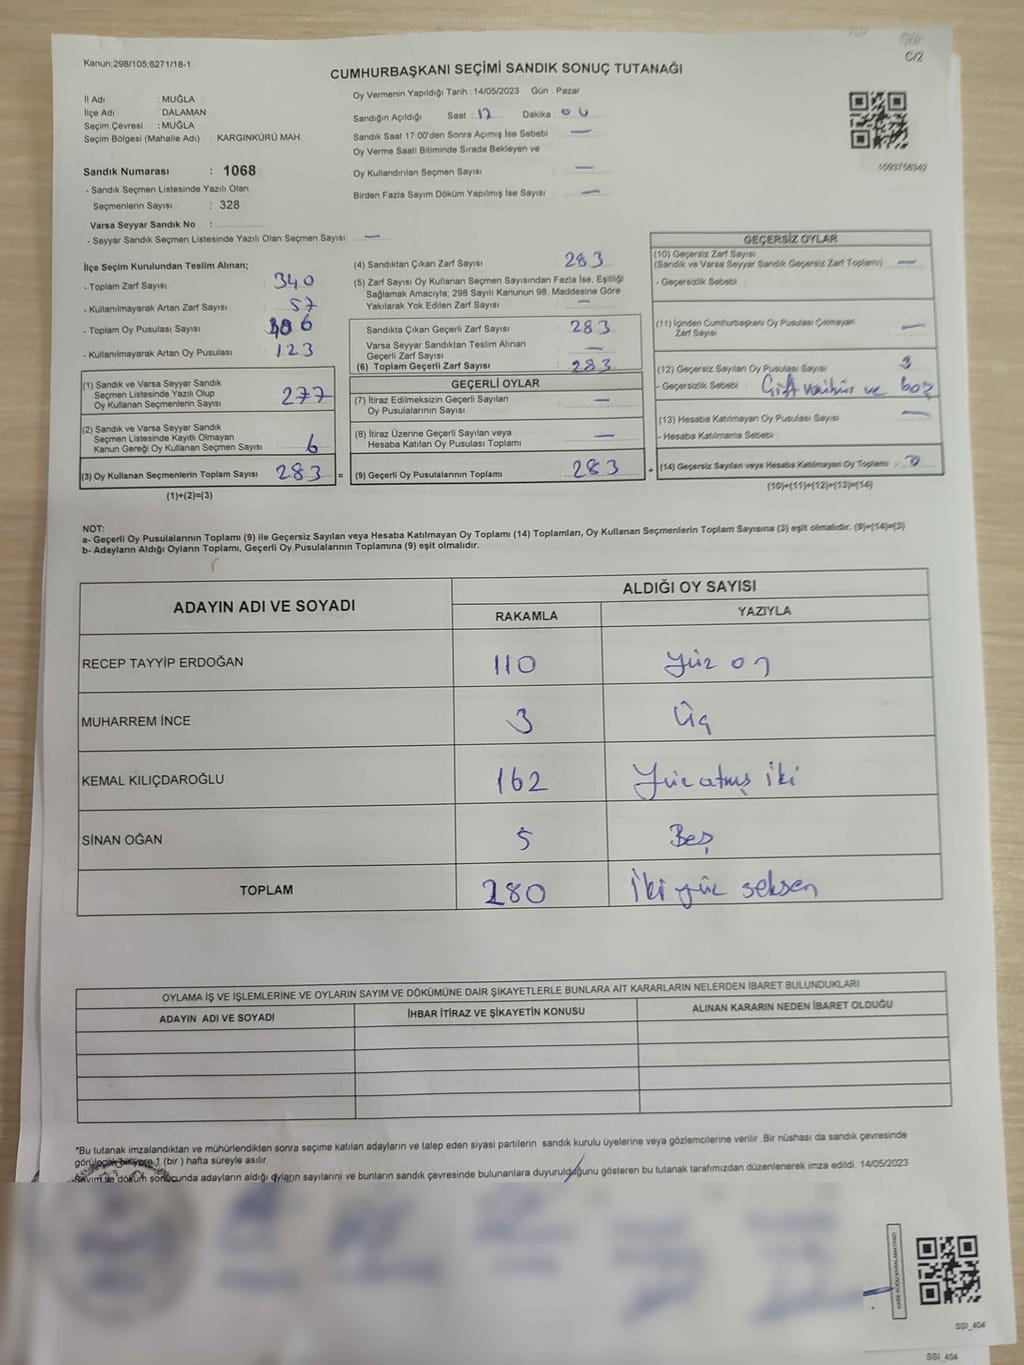 C/2
Kanun;298/105;6271/18-1
CUMHURBAŞKANI SEÇİMİ SANDIK SONUÇ TUTANAĞI
İl Adı : MUĞLA
İlçe Adı : DALAMAN
Seçim Çevresi : MUĞLA
Seçim Bölgesi (Mahalle Adı) : KARGINKÜRÜ MAH.
Sandık Numarası : 1068
- Sandık Seçmen Listesinde Yazılı Olan
Seçmenlerin Sayısı : 328
Varsa Seyyar Sandık No :
- Seyyar Sandık Seçmen Listesinde Yazılı Olan Seçmen Sayısı: —
Oy Vermenin Yapıldığı Tarih : 14/05/2023 Gün : Pazar
Sandığın Açıldığı Saat : 17 Dakika : 00
Sandık Saat 17:00'den Sonra Açımış İse Sebebi —
Oy Verme Saati Bitiminde Sırada Bekleyen ve
Oy Kullandırılan Seçmen Sayısı —
Birden Fazla Sayım Döküm Yapılmış İse Sayısı —
1593758342
İlçe Seçim Kurulundan Teslim Alınan;
- Toplam Zarf Sayısı : 340
- Kullanılmayarak Artan Zarf Sayısı : 57
- Toplam Oy Pusulası Sayısı : 406
- Kullanılmayarak Artan Oy Pusulası : 123
(1) Sandık ve Varsa Seyyar Sandık
Seçmen Listesinde Yazılı Olup
Oy Kullanan Seçmenlerin Sayısı : 277
(2) Sandık ve Varsa Seyyar Sandık
Seçmen Listesinde Kayıtlı Olmayan
Kanun Gereği Oy Kullanan Seçmen Sayısı : 6
(3) Oy Kullanan Seçmenlerin Toplam Sayısı : 283 =
(1)+(2)=(3)
(4) Sandıktan Çıkan Zarf Sayısı : 283
(5) Zarf Sayısı Oy Kullanan Seçmen Sayısından Fazla İse, Eşitliği
Sağlamak Amacıyla; 298 Sayılı Kanunun 98. Maddesine Göre
Yakılarak Yok Edilen Zarf Sayısı : —
Sandıkta Çıkan Geçerli Zarf Sayısı : 283
Varsa Seyyar Sandıktan Teslim Alınan
Geçerli Zarf Sayısı : —
(6) Toplam Geçerli Zarf Sayısı : 283
GEÇERLİ OYLAR
(7) İtiraz Edilmeksizin Geçerli Sayılan
Oy Pusulalarının Sayısı : —
(8) İtiraz Üzerine Geçerli Sayılan veya
Hesaba Katılan Oy Pusulası Toplamı : —
(9) Geçerli Oy Pusulalarının Toplamı : 283 +
GEÇERSİZ OYLAR
(10) Geçersiz Zarf Sayısı
(Sandık ve Varsa Seyyar Sandık Geçersiz Zarf Toplamı) : —
- Geçersizlik Sebebi :
(11) İçinden Cumhurbaşkanı Oy Pusulası Çıkmayan
Zarf Sayısı : —
(12) Geçersiz Sayılan Oy Pusulası Sayısı : 3
- Geçersizlik Sebebi : Çift mühür ve boş
(13) Hesaba Katılmayan Oy Pusulası Sayısı : —
- Hesaba Katılmama Sebebi :
(14) Geçersiz Sayılan veya Hesaba Katılmayan Oy Toplamı :
(10)+(11)+(12)+(13)=(14)
NOT:
a- Geçerli Oy Pusulalarının Toplamı (9) ile Geçersiz Sayılan veya Hesaba Katılmayan Oy Toplamı (14) Toplamları, Oy Kullanan Seçmenlerin Toplam Sayısına (3) eşit olmalıdır. (9)+(14)=(3)
b- Adayların Aldığı Oyların Toplamı, Geçerli Oy Pusulalarının Toplamına (9) eşit olmalıdır.
ADAYIN ADI VE SOYADI
ALDIĞI OY SAYISI
RAKAMLA YAZIYLA
RECEP TAYYİP ERDOĞAN 110 Yüz on
MUHARREM İNCE 3 Üç
KEMAL KILIÇDAROĞLU 162 Yüz atmış iki
SİNAN OĞAN 5 Beş
TOPLAM 280 İki yüz seksen
OYLAMA İŞ VE İŞLEMLERİNE VE OYLARIN SAYIM VE DÖKÜMÜNE DAİR ŞİKAYETLERLE BUNLARA AİT KARARLARIN NELERDEN İBARET BULUNDUKLARI
ADAYIN ADI VE SOYADI İHBAR İTİRAZ VE ŞİKAYETİN KONUSU ALINAN KARARIN NEDEN İBARET OLDUĞU
*Bu tutanak imzalandıktan ve mühürlendikten sonra seçime katılan adayların ve talep eden siyasi partilerin sandık kurulu üyelerine veya gözlemcilerine verilir .Bir nüshası da sandık çevresinde
görülecek bir yere 1 (bir ) hafta süreyle asılır.
Sayım ve döküm sonucunda adayların aldığı oyların sayılarını ve bunların sandık çevresinde bulunanlara duyurulduğunu gösteren bu tutanak tarafımızdan düzenlenerek imza edildi. 14/05/2023
KARE KODU KARALAMAYINIZ!
SSI_404
SSI_404